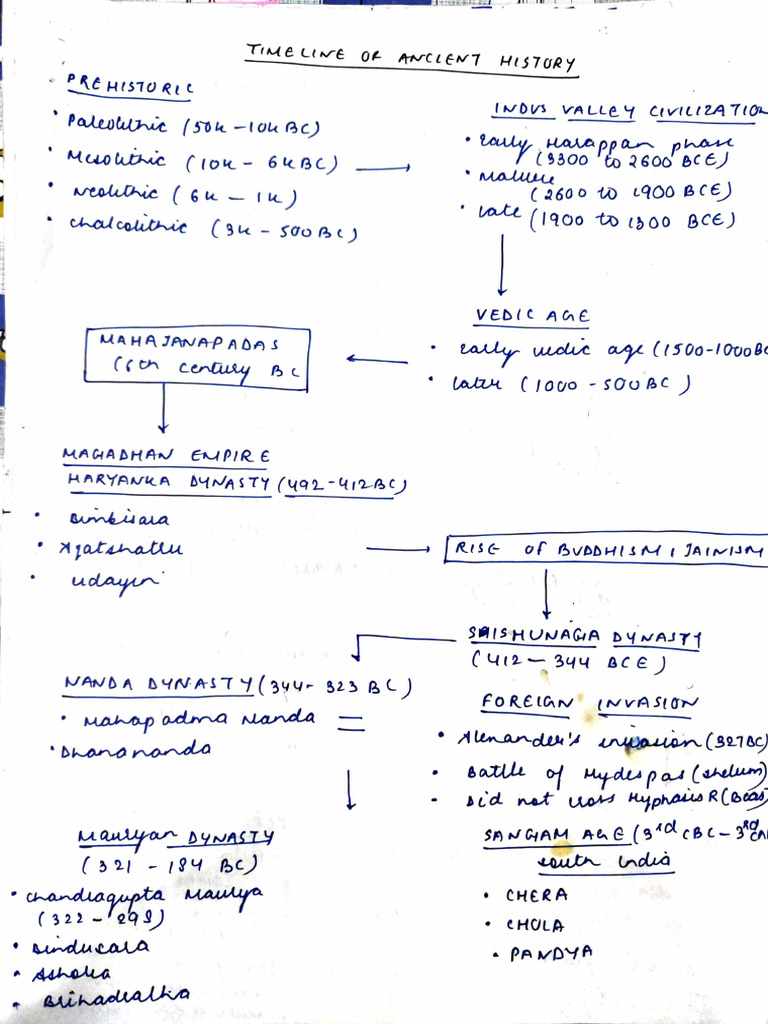 TIMELINE OF ANCIENT HISTORY
PREHISTORIC
• Paleolithic (50K – 10K BC)
• Mesolithic (10K – 6K BC)
• Neolithic (6K – 1K)
• Chalcolithic (3K – 500 BC)
INDUS VALLEY CIVILIZATION
• Early Harappan phase
(3300 to 2600 BCE)
• Mature
(2600 to 1900 BCE)
• Late (1900 to 1300 BCE)
VEDIC AGE
• Early vedic age (1500-1000 BC
• Later (1000 - 500 BC)
MAHAJANAPADAS
(6th century BC
MAGADHAN EMPIRE
HARYANKA DYNASTY (492-412 BC)
• Bimbisara
• Ajatshatru
• Udayin
RISE OF BUDDHISM, JAINISM
SHISHUNAGA DYNASTY
(412 – 344 BCE)
NANDA DYNASTY (344- 323 BC)
• Mahapadma Nanda
• Dhanananda
FOREIGN INVASION
• Alexander's invasion (327 BC)
• Battle of Hydespas (Jhelum)
• Did not cross Hyphasis R (Beas)
SANGAM AGE (3rd CBC – 3rd CA
South India
• CHERA
• CHOLA
• PANDYA
Mauryan DYNASTY
(321 - 184 BC)
• Chandragupta Maurya
(322 - 298)
• Bindusara
• Ashoka
• Brihadratha